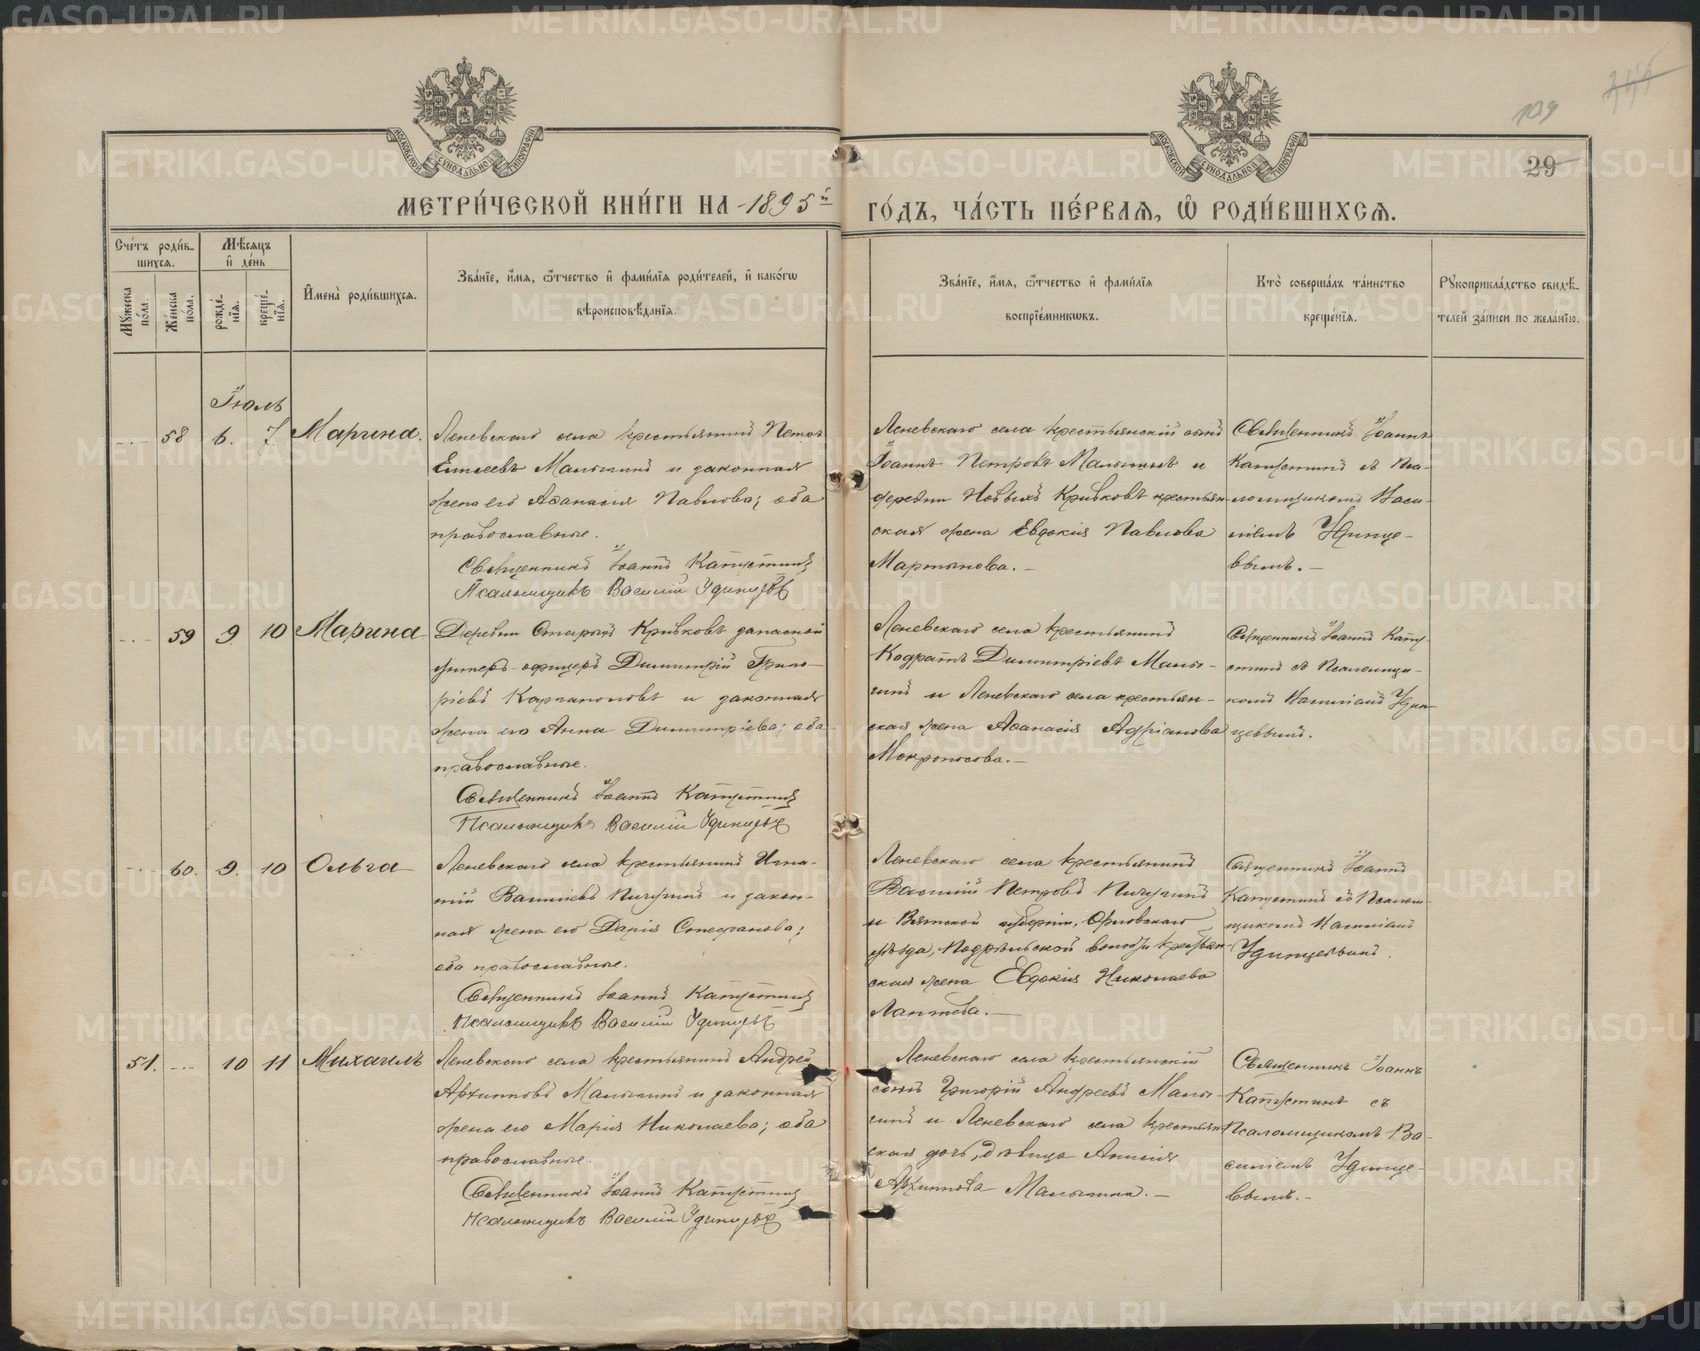 109
29
МЕТРИ́ЧЕСКОЙ КНИ́ГИ НА 1895й
ГО́ДЪ, ЧА́СТЬ ПЕ́РВАѦ, Ѽ РОДИ́ВШИХСѦ.
Сче́тъ роди́в-
шихсѧ.
Мꙋжеска по́ла.
Же́нска по́ла.
Мѣ́сѧцъ
и҆ де́нь
рожде́нїѧ.
креще́нїѧ.
И҆мена̀ роди́вшихсѧ.
Зва́нїе, и҆́мѧ, ѻ҆́тчество и҆ фами́лїѧ роди́телей, и҆ како́гѡ
вѣроисповѣ́данїѧ.
Зва́нїе, и҆́мѧ, ѻ҆́тчество и҆ фами́лїѧ
воспрїе́мникѡвъ.
Кто̀ соверша́лъ та́инство
креще́нїѧ.
Рꙋкоприкла́дство свидѣ́-
телей за́писи по жела́нїю.
Іюль
58 6. 7. Марина.
Леневскаго села крестьянинъ Петръ
Елисеевъ Малыгинъ и законная
жена его Аѳанасія Павлова; оба
православные.
Священникъ Іоаннъ Капустинъ
Псаломщикъ Василій Удинцевъ
Леневскаго села крестьянскій сынъ
Іоаннъ Петровъ Малыгинъ и
деревни Новыхъ Кривковъ крестьян-
ская жена Евдокія Павлова
Мартьянова.
Священникъ Іоаннъ
Капустинъ съ Пса-
ломщикомъ Васи-
ліемъ Удинце-
вымъ.
59 9 10 Марина
Деревни Старыхъ Кривковъ запасный
унтеръ-офицеръ Димитрій Григо-
ріевъ Карпаполовъ и законная
жена его Анна Димитріева; оба
православные.
Священникъ Іоаннъ Капустинъ
Псаломщикъ Василій Удинцевъ
Леневскаго села крестьянинъ
Кодратъ Димитріевъ Малы-
гинъ и Леневскаго села крестьян-
ская жена Аѳанасія Адріанова
Мокроносова.
Священникъ Іоаннъ Капу-
стинъ съ Псаломщи-
комъ Василіемъ Удин-
цевымъ.
60. 9. 10 Ольга
Леневскаго села крестьянинъ Игна-
тій Василіевъ Пичугинъ и закон-
ная жена его Дарія Стефанова;
оба православные.
Священникъ Іоаннъ Капустинъ
Псаломщикъ Василій Удинцевъ
Леневскаго села крестьянинъ
Василій Петровъ Пичугинъ
и Вятской губерніи, Орловскаго
уѣзда, Подрельской волости крестьян-
ская жена Евдокія Николаева
Лаптева.
Священникъ Іоаннъ
Капустинъ съ Псалом-
щикомъ Василіемъ
Удинцевымъ.
51. 10 11 Михаилъ
Леневскаго села крестьянинъ Андрей
Архипповъ Малыгинъ и законная
жена его Марія Николаева; оба
православные.
Священникъ Іоаннъ Капустинъ
Псаломщикъ Василій Удинцевъ
Леневскаго села крестьянскій
сынъ Григорій Андреевъ Малы-
гинъ и Леневскаго села крестьян-
ская дочь, дѣвица Анисія
Архиппова Малыгина.
Священникъ Іоаннъ
Капустинъ съ
Псаломщикомъ Ва-
силіемъ Удинце-
вымъ.
METRIKI.GASO-URAL.RU